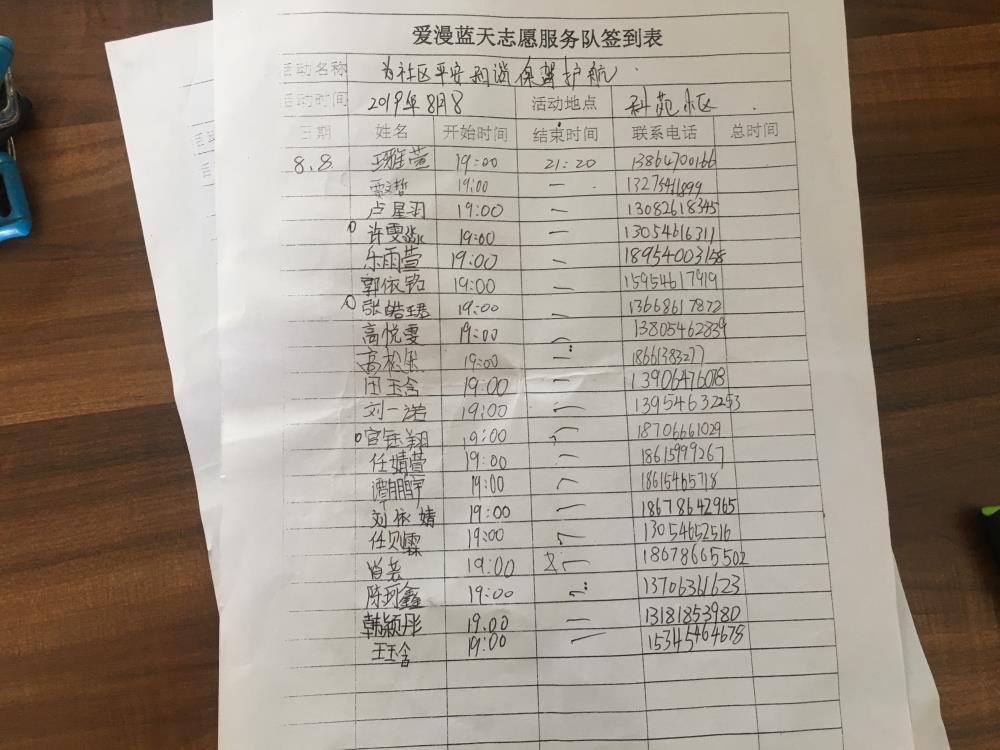 爱漫蓝天志愿服务队签到表
活动名称 为社区平安和谐保驾护航
活动时间 2019年8月8 活动地点 科苑小区
日期 姓名 开始时间 结束时间 联系电话 总时间
8.8 王雅萱 19:00 21:20 13864700166
19:00 — 13275411899
卢星羽 19:00 — 13082618345
许雯淼 19:00 — 13054616311
乐雨萱 19:00 — 18954003158
郭依铭 19:00 — 15954617919
张皓珺 19:00 — 13668617872
高悦雯 19:00 — 13805462839
高松 19:00 — 18661383277
田玉含 19:00 — 13906476018
刘一诺 19:00 — 13954632253
宫钰翔 19:00 — 18706661029
任婧萱 19:00 — 18615999267
谭鹏宇 19:00 — 18615465718
刘依婧 19:00 — 18678642965
任贝霖 19:00 — 13054652516
19:00 — 18678665502
陈珂鑫 19:00 13706361623
韩颖彤 19.00 — 13181853980
王玉含 19:00 — 15345464678